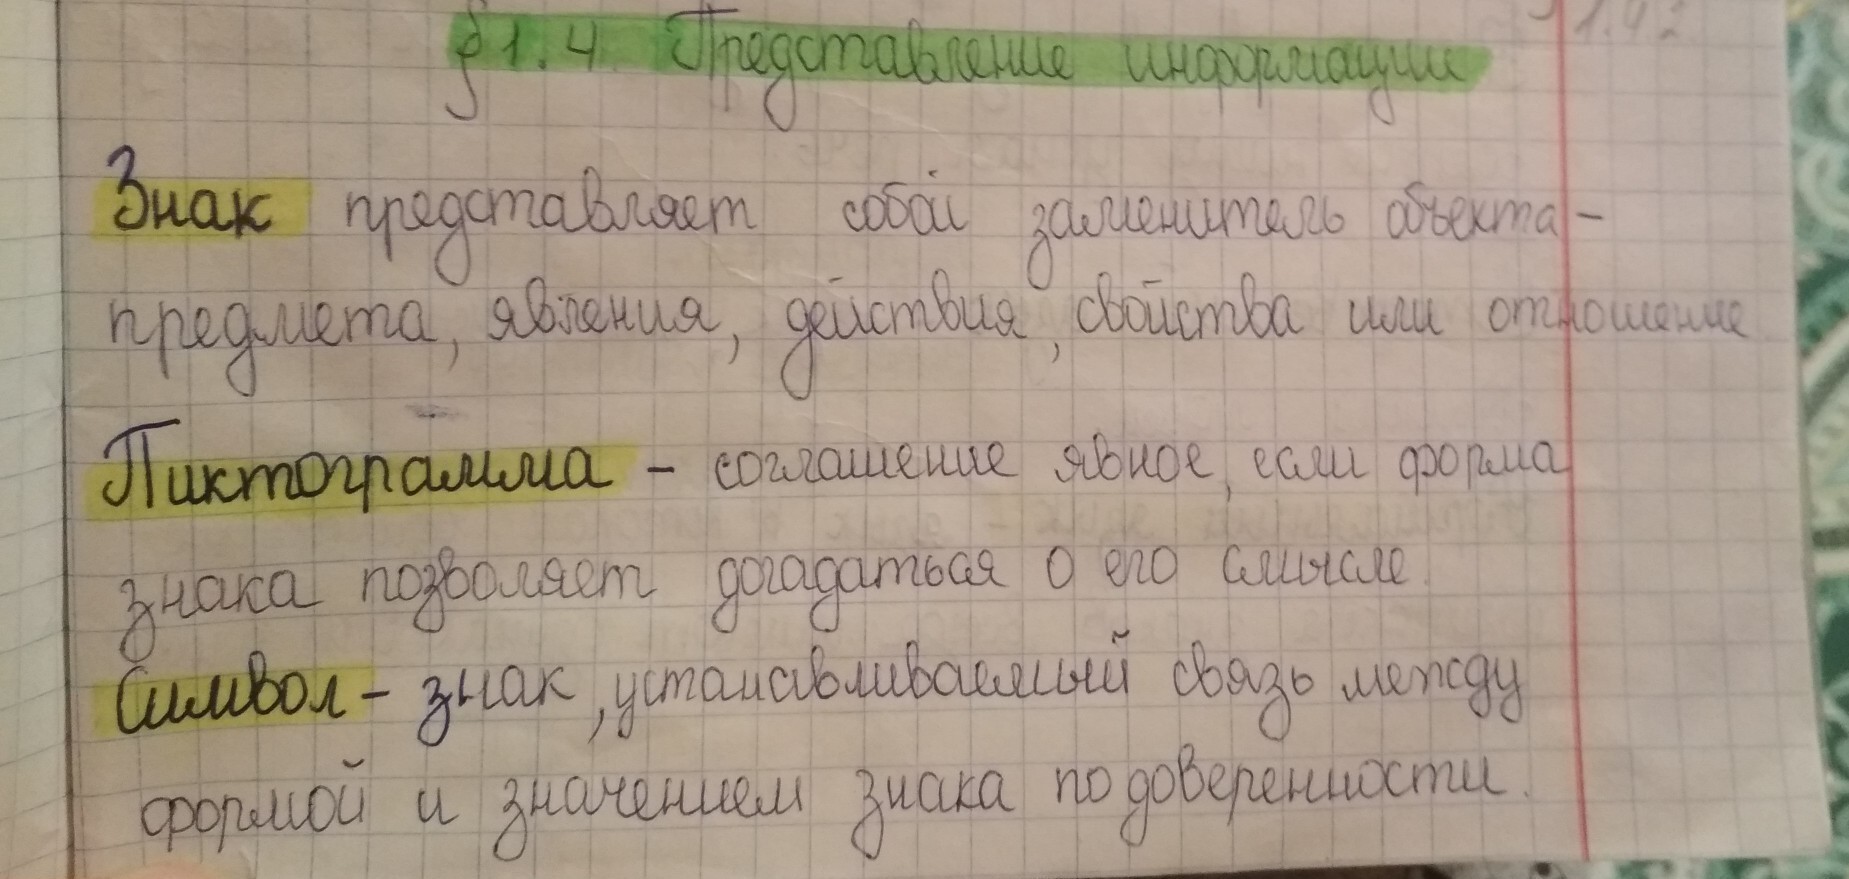 § 1.4 Представление информации
Знак представляет собой заменитель объекта -
предмета, явления, действия, свойства или отношение
Пиктограмма - соглашение явное, если форма
знака позволяет догадаться о его смысле.
Символ - знак, устанавливаемый связь между
формой и значением знака по доверенности.